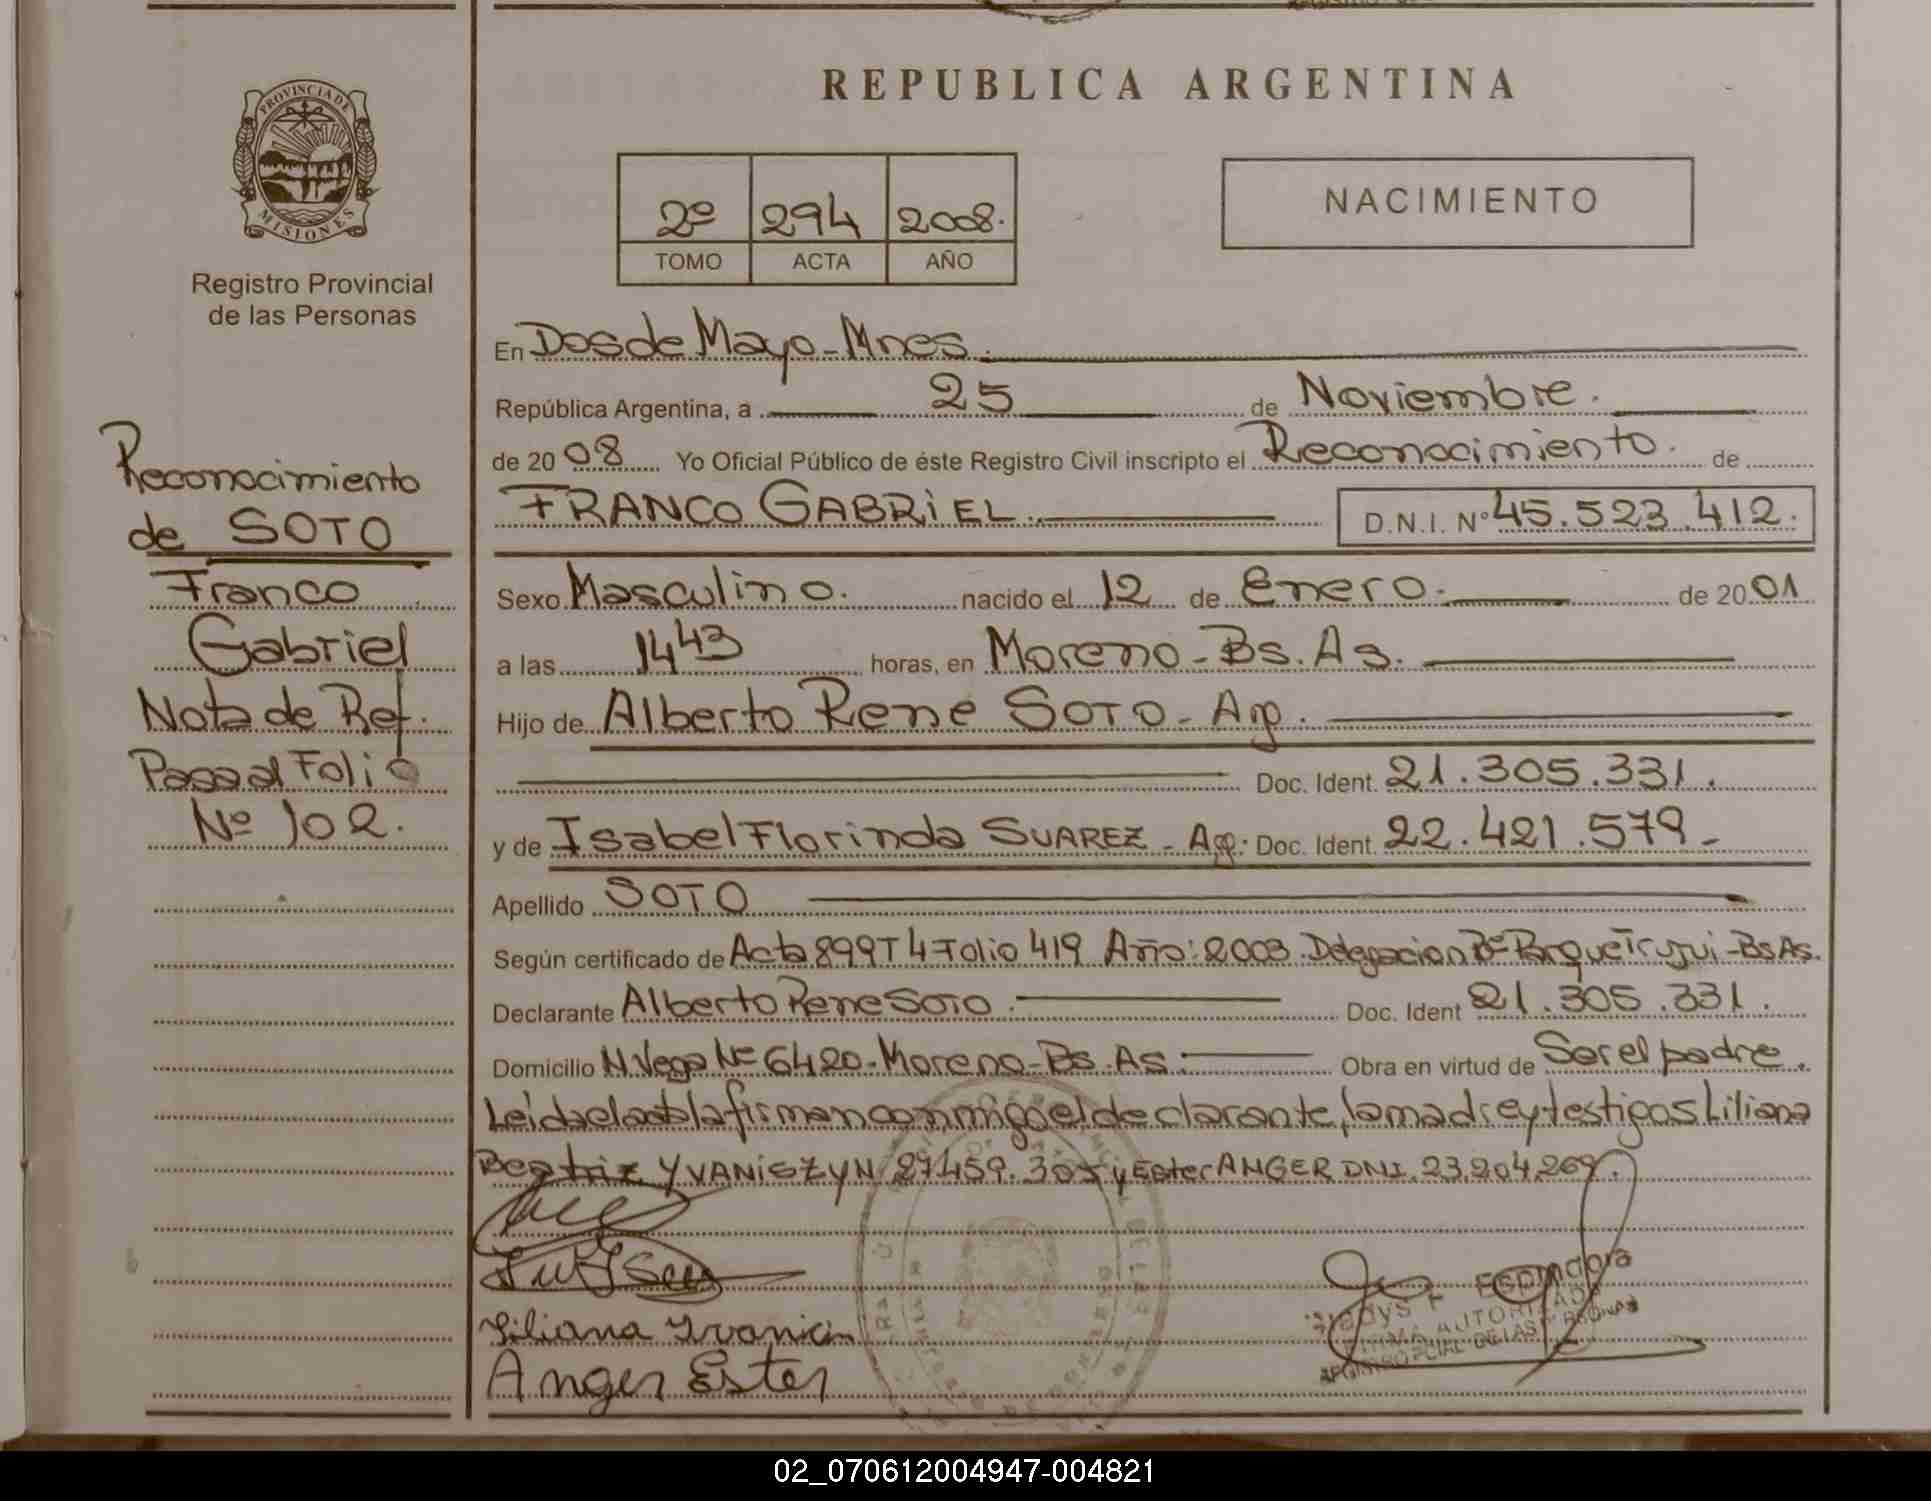 REPUBLICA ARGENTINA
PROVINCIA DE
MISIONES
Registro Provincial
de las Personas
2º 294 2008.
TOMO ACTA AÑO
NACIMIENTO
Reconocimiento
de SOTO
Franco
Gabriel
Nota de Ref.
Pasa al Folio
Nº 102.
En Dos de Mayo - Mnes.
República Argentina, a 25 de Noviembre.
de 20 08 Yo Oficial Público de éste Registro Civil inscripto el Reconocimiento. de
FRANCO GABRIEL. D.N.I. Nº 45.523.412.
Sexo Masculino. nacido el 12 de Enero. de 20 01
a las 14 43 horas, en Moreno - Bs. As.
Hijo de Alberto Rene SOTO - Arg.
Doc. Ident. 21.305.331.
y de Isabel Florinda SUAREZ - Arg. Doc. Ident. 22.421.579 -
Apellido SOTO
Según certificado de Acta 899 T 4 Folio 419 Año: 2003. Delegacion Bº Parque Trujui - Bs As.
Declarante Alberto Rene SOTO. Doc. Ident 21.305.331.
Domicilio N Vega Nº 6420 - Moreno - Bs. As. Obra en virtud de Ser el padre.
Leida el acta la firman conmigo el declarante, la madre y testigos Liliana
Beatriz YVANISZYN 27459.305 y Ester ANGER DNI. 23.204.269.
Liliana
Anger Ester
Gladys F Espindola
FIRMA AUTORIZADA
REGISTRO PCIAL DE LAS PERSONAS
02_070612004947-004821